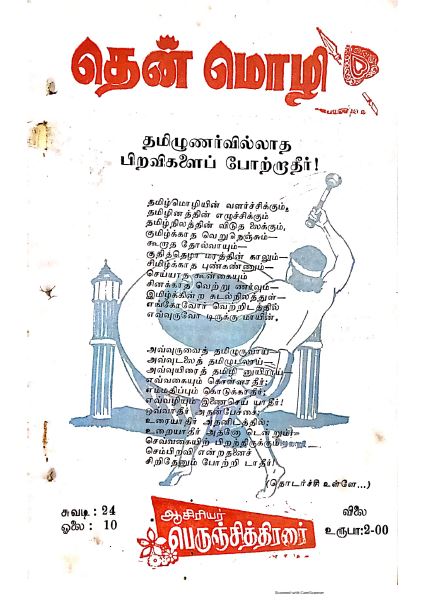 தென் மொழி
தமிழுணர்வில்லாத
பிறவிகளைப் போற்றாதீர்!
தமிழ்மொழியின் வளர்ச்சிக்கும்,
தமிழினத்தின் எழுச்சிக்கும்
தமிழ்நிலத்தின் விடுத லைக்கும்,
குமிழ்க்காத வெறுநெஞ்சும்—
கூருத தோல்வாயும்—
குதித்தெழா மரத்தின் காலும்—
சிமிழ்க்காத புண்கண்ணும்—
செய்யாத கூன்கையும்
சினக்காத வெற்று ணர்வும்—
இமிழ்க்கின்ற கடல்நிலத்துள்—
எங்கோவோர் வெற்றிடத்தில்
எவ்வுருவோ டிருக்கு மாயின்.
அவ்வுருவைத் தமிழுருவாய்—
அவ்வுடலைத் தமிழுடலாய்—
அவ்வுயிரைத் தமிழி னுயிராய்—
எவ்வகையும் கொள்ளாதீர்;
எம்மதிப்பும் கொடுக்காதீர்;
எவ்வழியும் இணைசெய் யாதீர்!
ஒவ்வாதீர் அதன்பேச்சை;
உரையாதீர் அதனிடத்தில்;
உறையாதீர் அதனோ டென்றும்—
செவ்வகையிற் பிறந்திருக்கும்
செம்பிறவி என்றதனைச்
சிறிதேனும் போற்றி டாதீர்!
(தொடர்ச்சி உள்ளே...)
சுவடி : 24
ஓலை : 10
ஆசிரியர்
பெருஞ்சித்திரனார்
விலை
உருபா:2-00
Scanned with CamScanner